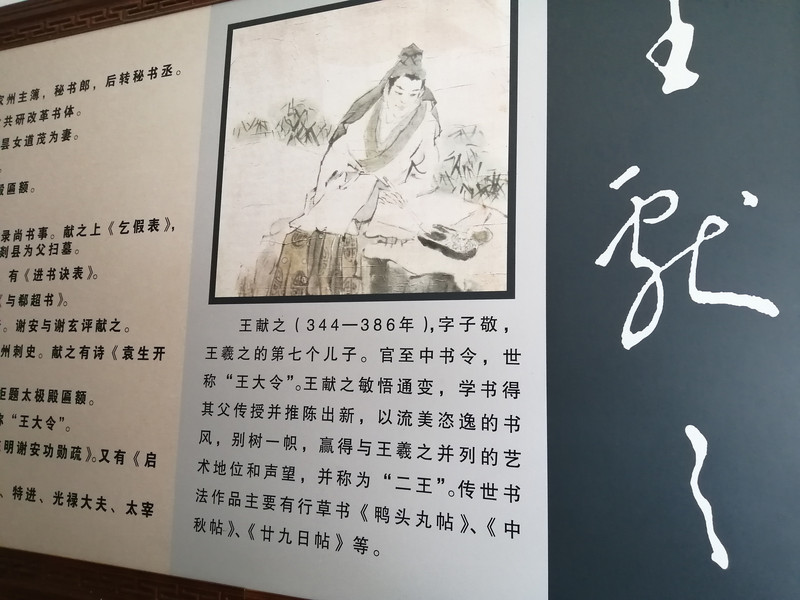 州主薄，秘书郎，后转秘书丞。
共研改革书体。
昙女道茂为妻。
殿匾额。
录尚书事。献之上《乞假表》，
剡县为父扫墓。
有《进书诀表》。
《与郗超书》。
谢安与谢玄评献之。
州刺史。献之有诗《袁生开
拒题太极殿匾额。
称“王大令”。
明谢安功勋疏》。又有《启
、特进、光禄大夫、太宰
王献之（344—386年），字子敬，
王羲之的第七个儿子。官至中书令，世
称“王大令”。王献之敏悟通变，学书得
其父传授并推陈出新，以流美恣逸的书
风，别树一帜，赢得与王羲之并列的艺
术地位和声望，并称为“二王”。传世书
法作品主要有行草书《鸭头丸帖》、《中
秋帖》、《廿九日帖》等。
王献之